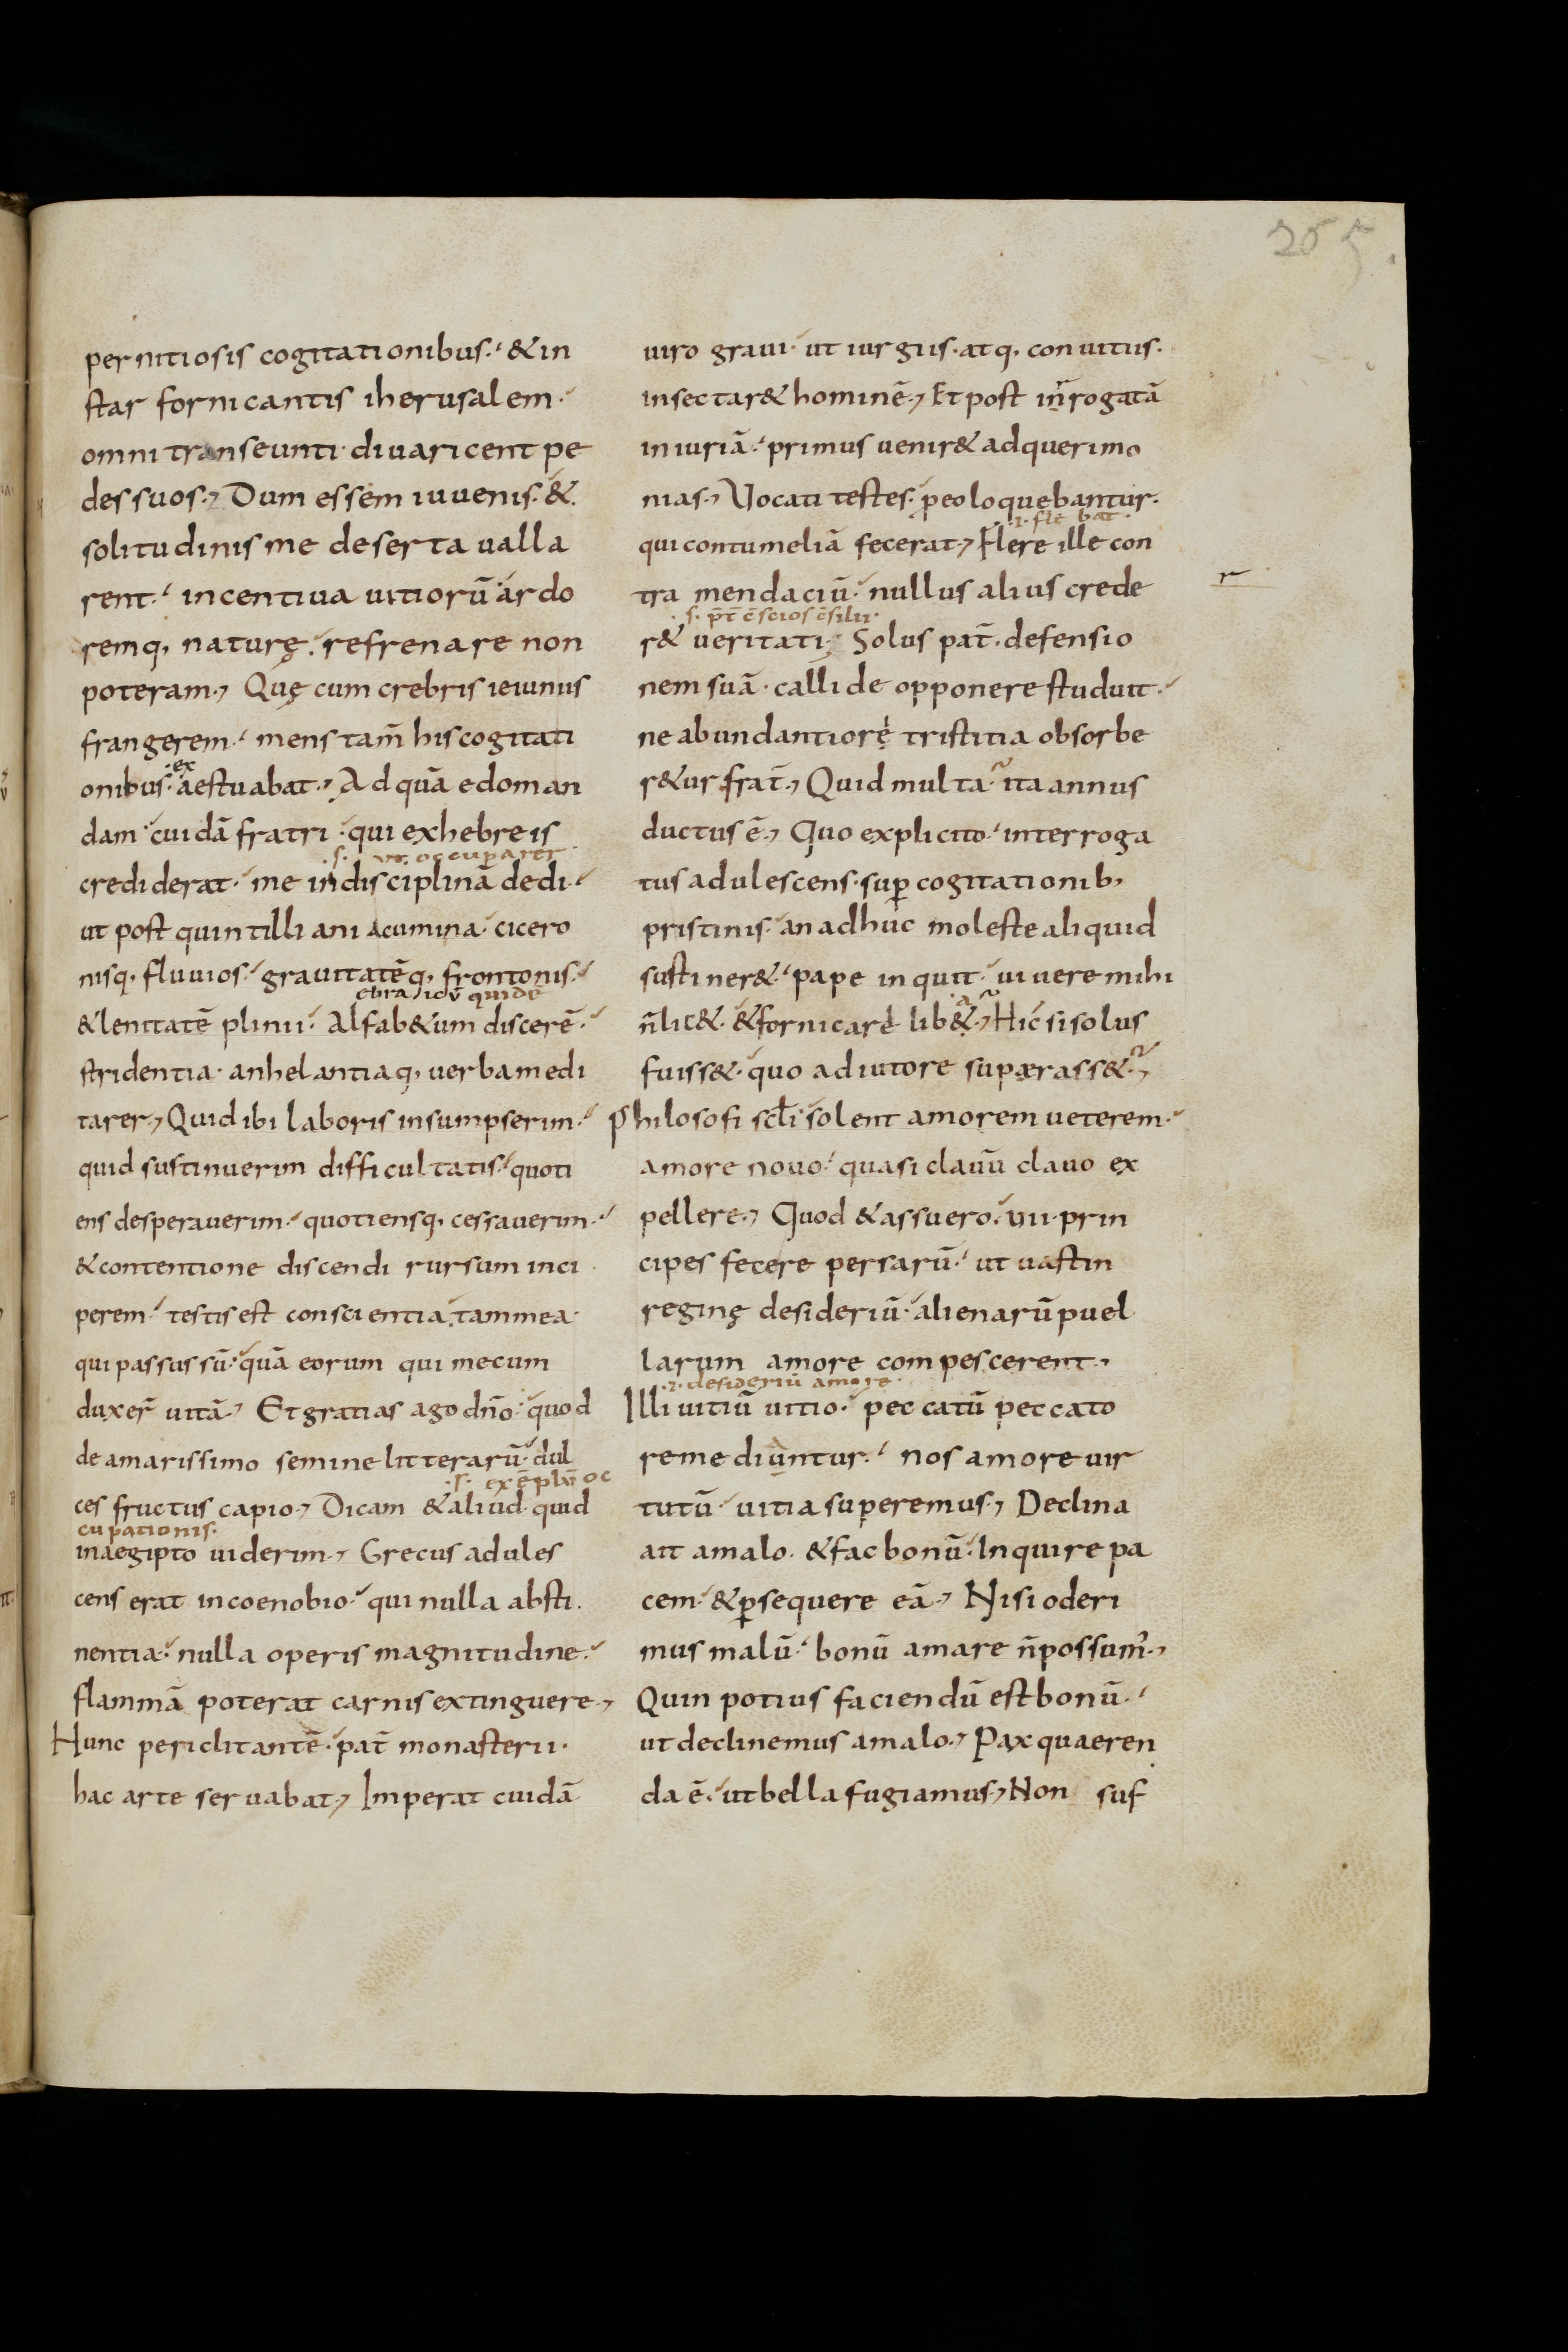 255.
pernitiosis cogitationibus. & in
star fornicantis iherusalem.
omni transeunti. divaricent pe
des suos. Dum essem iuvenis. &
solitudinis me deserta valla
rent. incentiva vitiorū ardo
remq. naturę. refrenare non
poteram. Quę cum crebris ieiuniis
frangerem. mens tam̄ his cogitati
.ex
onibus. aestuabat. Ad quā edoman
dam cuidā fratri. qui ex hebreis
.s. ut occuparer
crediderat. me in disciplinā dedi.
ut post quintilliani acumina. cicero
nisq. fluvios. gravitatēq. frontonis.
ebraicū quidē
& lenitatē plinii. Alfab&um discerē.
stridentia. anhelantiaq. verba medi
tarer. Quid ibi laboris insumpserim.
quid sustinuerim difficultatis. quoti
ens desperaverim. quotiensq. cessaverim.
& contentione discendi rursum inci
perem. testis est conscientia. tam mea
qui passus sū. quā eorum qui mecum
duxer̄ vitā. Et gratias ago dn̄o. quod
de amarissimo semine litterarū. dul
.s. exēplū oc
ces fructus capio. Dicam & aliud quid
cupationis.
in aegipto viderim. Grecus adules
cens erat in coenobio. qui nulla absti
nentia. nulla operis magnitudine.
flammā poterat carnis extinguere.
Hunc periclitantē. pat̄ monasterii.
hac arte servabat. Imperat cuidā
viro gravi. ut iurgiis. atq. convitiis.
insectar& hominē. Et post in̄rogatā
iniuriā. primus venir& ad querimo
nias. Vocati testes. p eo loquebantur.
.i. flebat.
qui contumeliā fecerat. Flere ille con
tra mendaciū. nullus alius crede
r
.s. pat̄ c̄scios c̄silii.
r& veritati. Solus pat̄. defensio
nem suā. callide opponere studuit.
ne abundantiorę tristitia obsorbe
r&ur frat̄. Quid multa. ita annus
ductus ē. Quo explicito. interroga
tus adulescens. sup̄ cogitationib.
pristinis. an adhuc moleste aliquid
sustiner&. pape inquit. vivere mihi
a
n̄ lic&. & fornicarė lib&. Hic si solus
fuiss&. quo adiutore supærass&.
Philosofi scl̄i solent amorem veterem.
amore novo. quasi clavū clavo ex
pellere. Quod & assuero. vii. prin
cipes fecere persarū. ut vastin
reginę desideriū. alienarū puel
larum amore compescerent.
.i. desideriū amore.
Illi vitiū vitio. peccatū peccato
remediuntur. nos amore vir
tutū. vitia superemus. Declina
ait a malo. & fac bonū. Inquire pa
cem. & p̄sequere eā. Nisi oderi
mus malū. bonū amare n̄ possum̄.
Quin potius faciendū est bonū.
ut declinemus a malo. Pax quaeren
da ē. ut bella fugiamus. Non suf